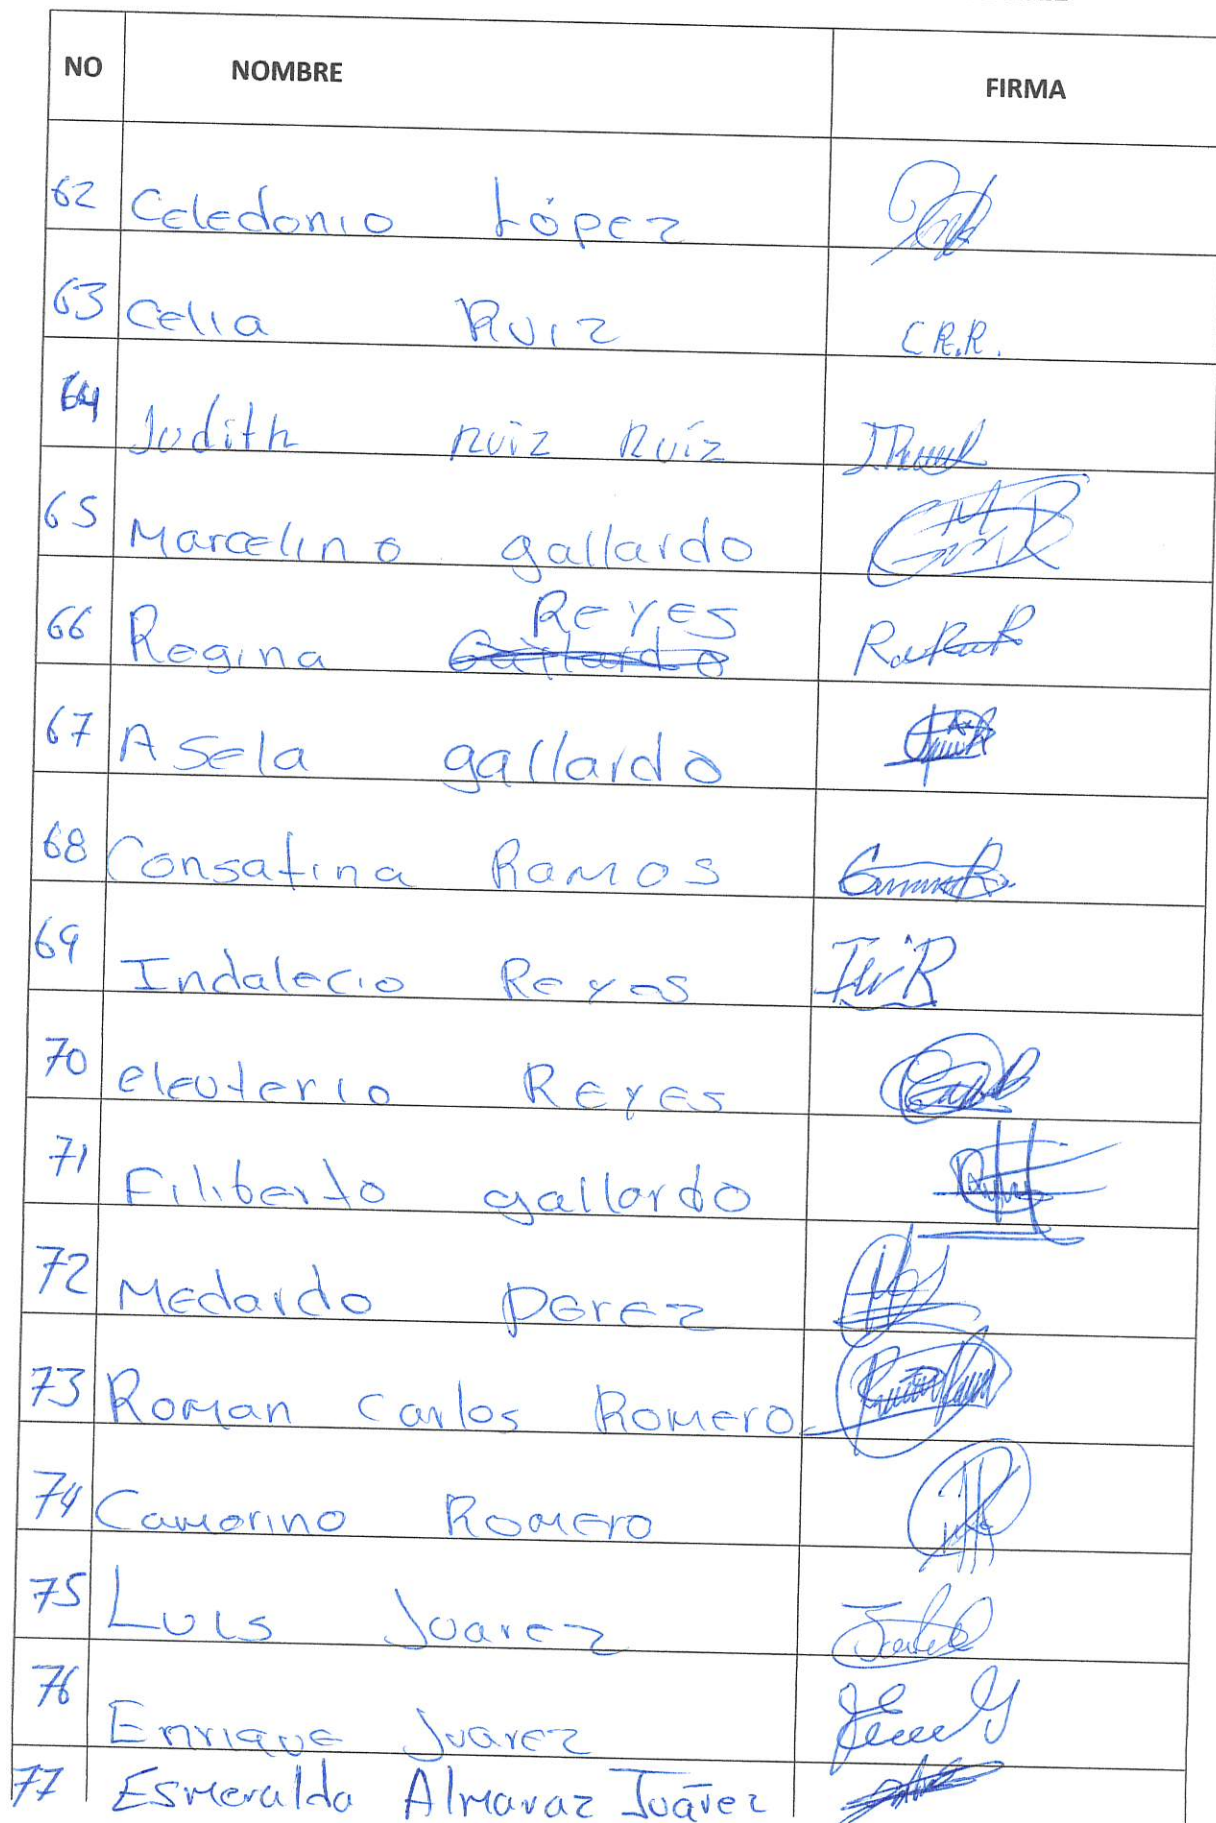 NO NOMBRE FIRMA
62 Celedonio López
63 Celia Ruiz C R.R.
64 Judith Ruiz Ruíz
65 Marcelino gallardo
Reyes
66 Regina Gallardo
67 Asela gallardo
68 Consatina Ramos
69 Indalecio Reyes
70 eleuterio Reyes
71 Filiberto gallardo
72 Medardo perez
73 Roman Carlos Romero
74 Camorino Romero
75 Luis Juarez
76 Enrique Juarez
77 Esmeralda Almaraz Juárez